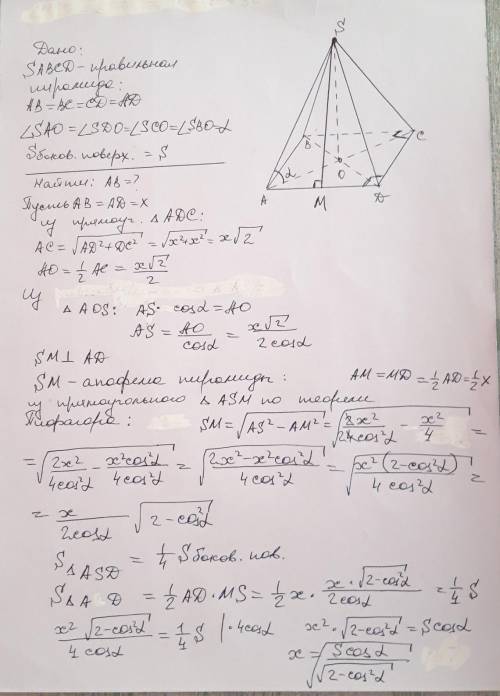 Дано:
SABCD – правильная
пирамида:
AB=BC=CD=AD
∠SAO=∠SDO=∠SCO=∠SBO=α
Sбоков. поверх. = S
Найти: AB=?
Пусть AB=AD=x
Из прямоуг. △ADC:
AC=√(AD²+DC²)=√(x²+x²)=x√2
AO=1/2 AC=x√2/2
Из
△AOS: AS·cosα=AO
AS=AO/cosα=x√2/2cosα
SM⊥AD
SM – апофема пирамиды: AM=MD=1/2AD=1/2x
из прямоугольного △ASM по теореме
Пифагора: SM=√(AS²-AM²)=√(x²/4cos²α - x²/4)=
=√(2x²/4cos²α - x²cos²α/4cos²α)=√((2x²-x²cos²α)/4cos²α)=√(x²(2-cos²α)/4cos²α)=
=x/2cosα √(2-cos²α)
S△ASD=1/4 Sбоков. пов.
S△A D=1/2 AD·MS=1/2 x·x·√(2-cos²α)/2cosα=1/4 S
x²√(2-cos²α)/4cosα=1/4 S |·4cosα x²·√(2-cos²α)=Scosα
x=√(Scosα/√(2-cos²α))
S
B
C
O
α
A
M
D